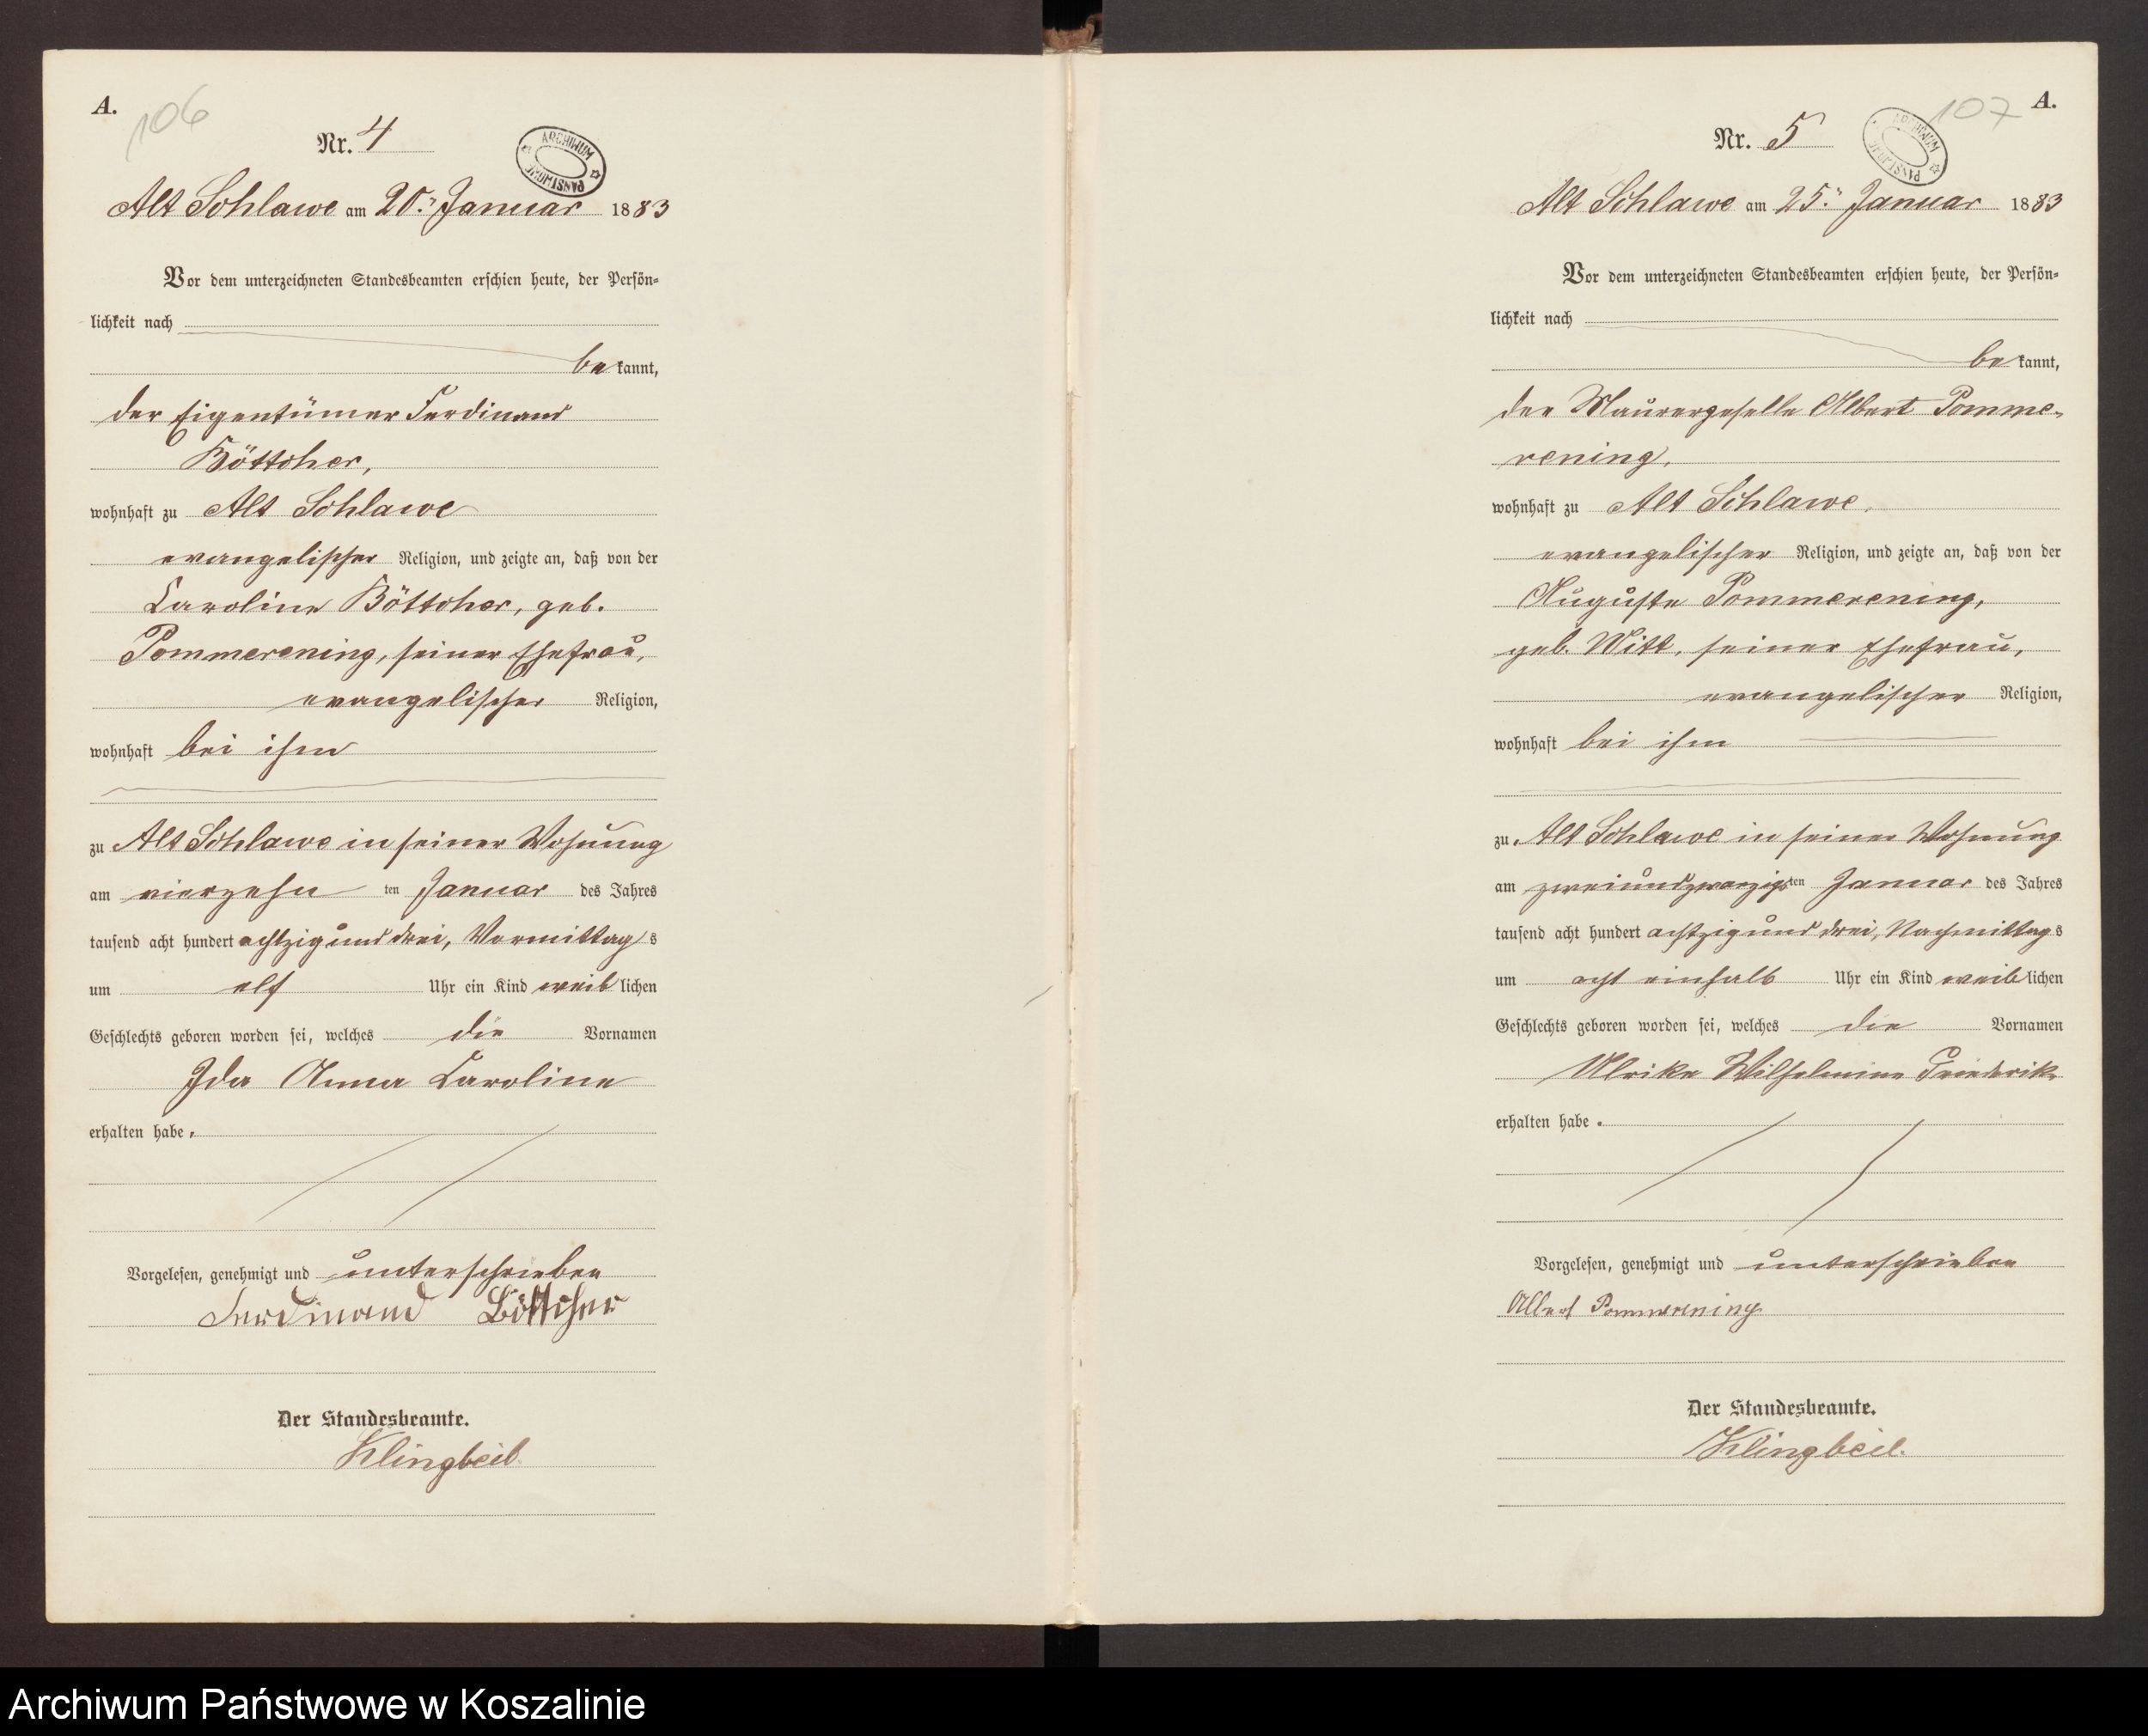 A.
106
Nr. 4
ARCHIWUM PAŃSTWOWE
Alt Schlawe am 20.ⁿ Januar 1883
Vor dem unterzeichneten Standesbeamten erschien heute, der Persön-
lichkeit nach
bekannt,
der Eigentümer Ferdinand
Böttcher,
wohnhaft zu Alt Schlawe
evangelischer Religion, und zeigte an, daß von der
Caroline Böttcher, geb.
Pommerening, seiner Ehefrau,
evangelischer Religion,
wohnhaft bei ihm
zu Alt Schlawe in seiner Wohnung
am vierzehn ten Januar des Jahres
tausend acht hundert achtzig und drei, Vormittags
um elf Uhr ein Kind weiblichen
Geschlechts geboren worden sei, welches die Vornamen
Ida Anna Caroline
erhalten habe.
Vorgelesen, genehmigt und unterschrieben
Ferdinand Böttcher
Der Standesbeamte.
Klingbeil.
107
A.
Nr. 5
ARCHIWUM PAŃSTWOWE
Alt Schlawe am 25.ⁿ Januar 1883
Vor dem unterzeichneten Standesbeamten erschien heute, der Persön-
lichkeit nach
bekannt,
der Maurergeselle Albert Pomme-
rening,
wohnhaft zu Alt Schlawe,
evangelischer Religion, und zeigte an, daß von der
Auguste Pommerening,
geb. Witt, seiner Ehefrau,
evangelischer Religion,
wohnhaft bei ihm
zu Alt Schlawe in seiner Wohnung
am zweiundzwanzigsten Januar des Jahres
tausend acht hundert achtzig und drei, Nachmittags
um acht einhalb Uhr ein Kind weiblichen
Geschlechts geboren worden sei, welches die Vornamen
Ulrike Wilhelmine Friederike
erhalten habe.
Vorgelesen, genehmigt und unterschrieben
Albert Pommerening
Der Standesbeamte.
Klingbeil.
Archiwum Państwowe w Koszalinie